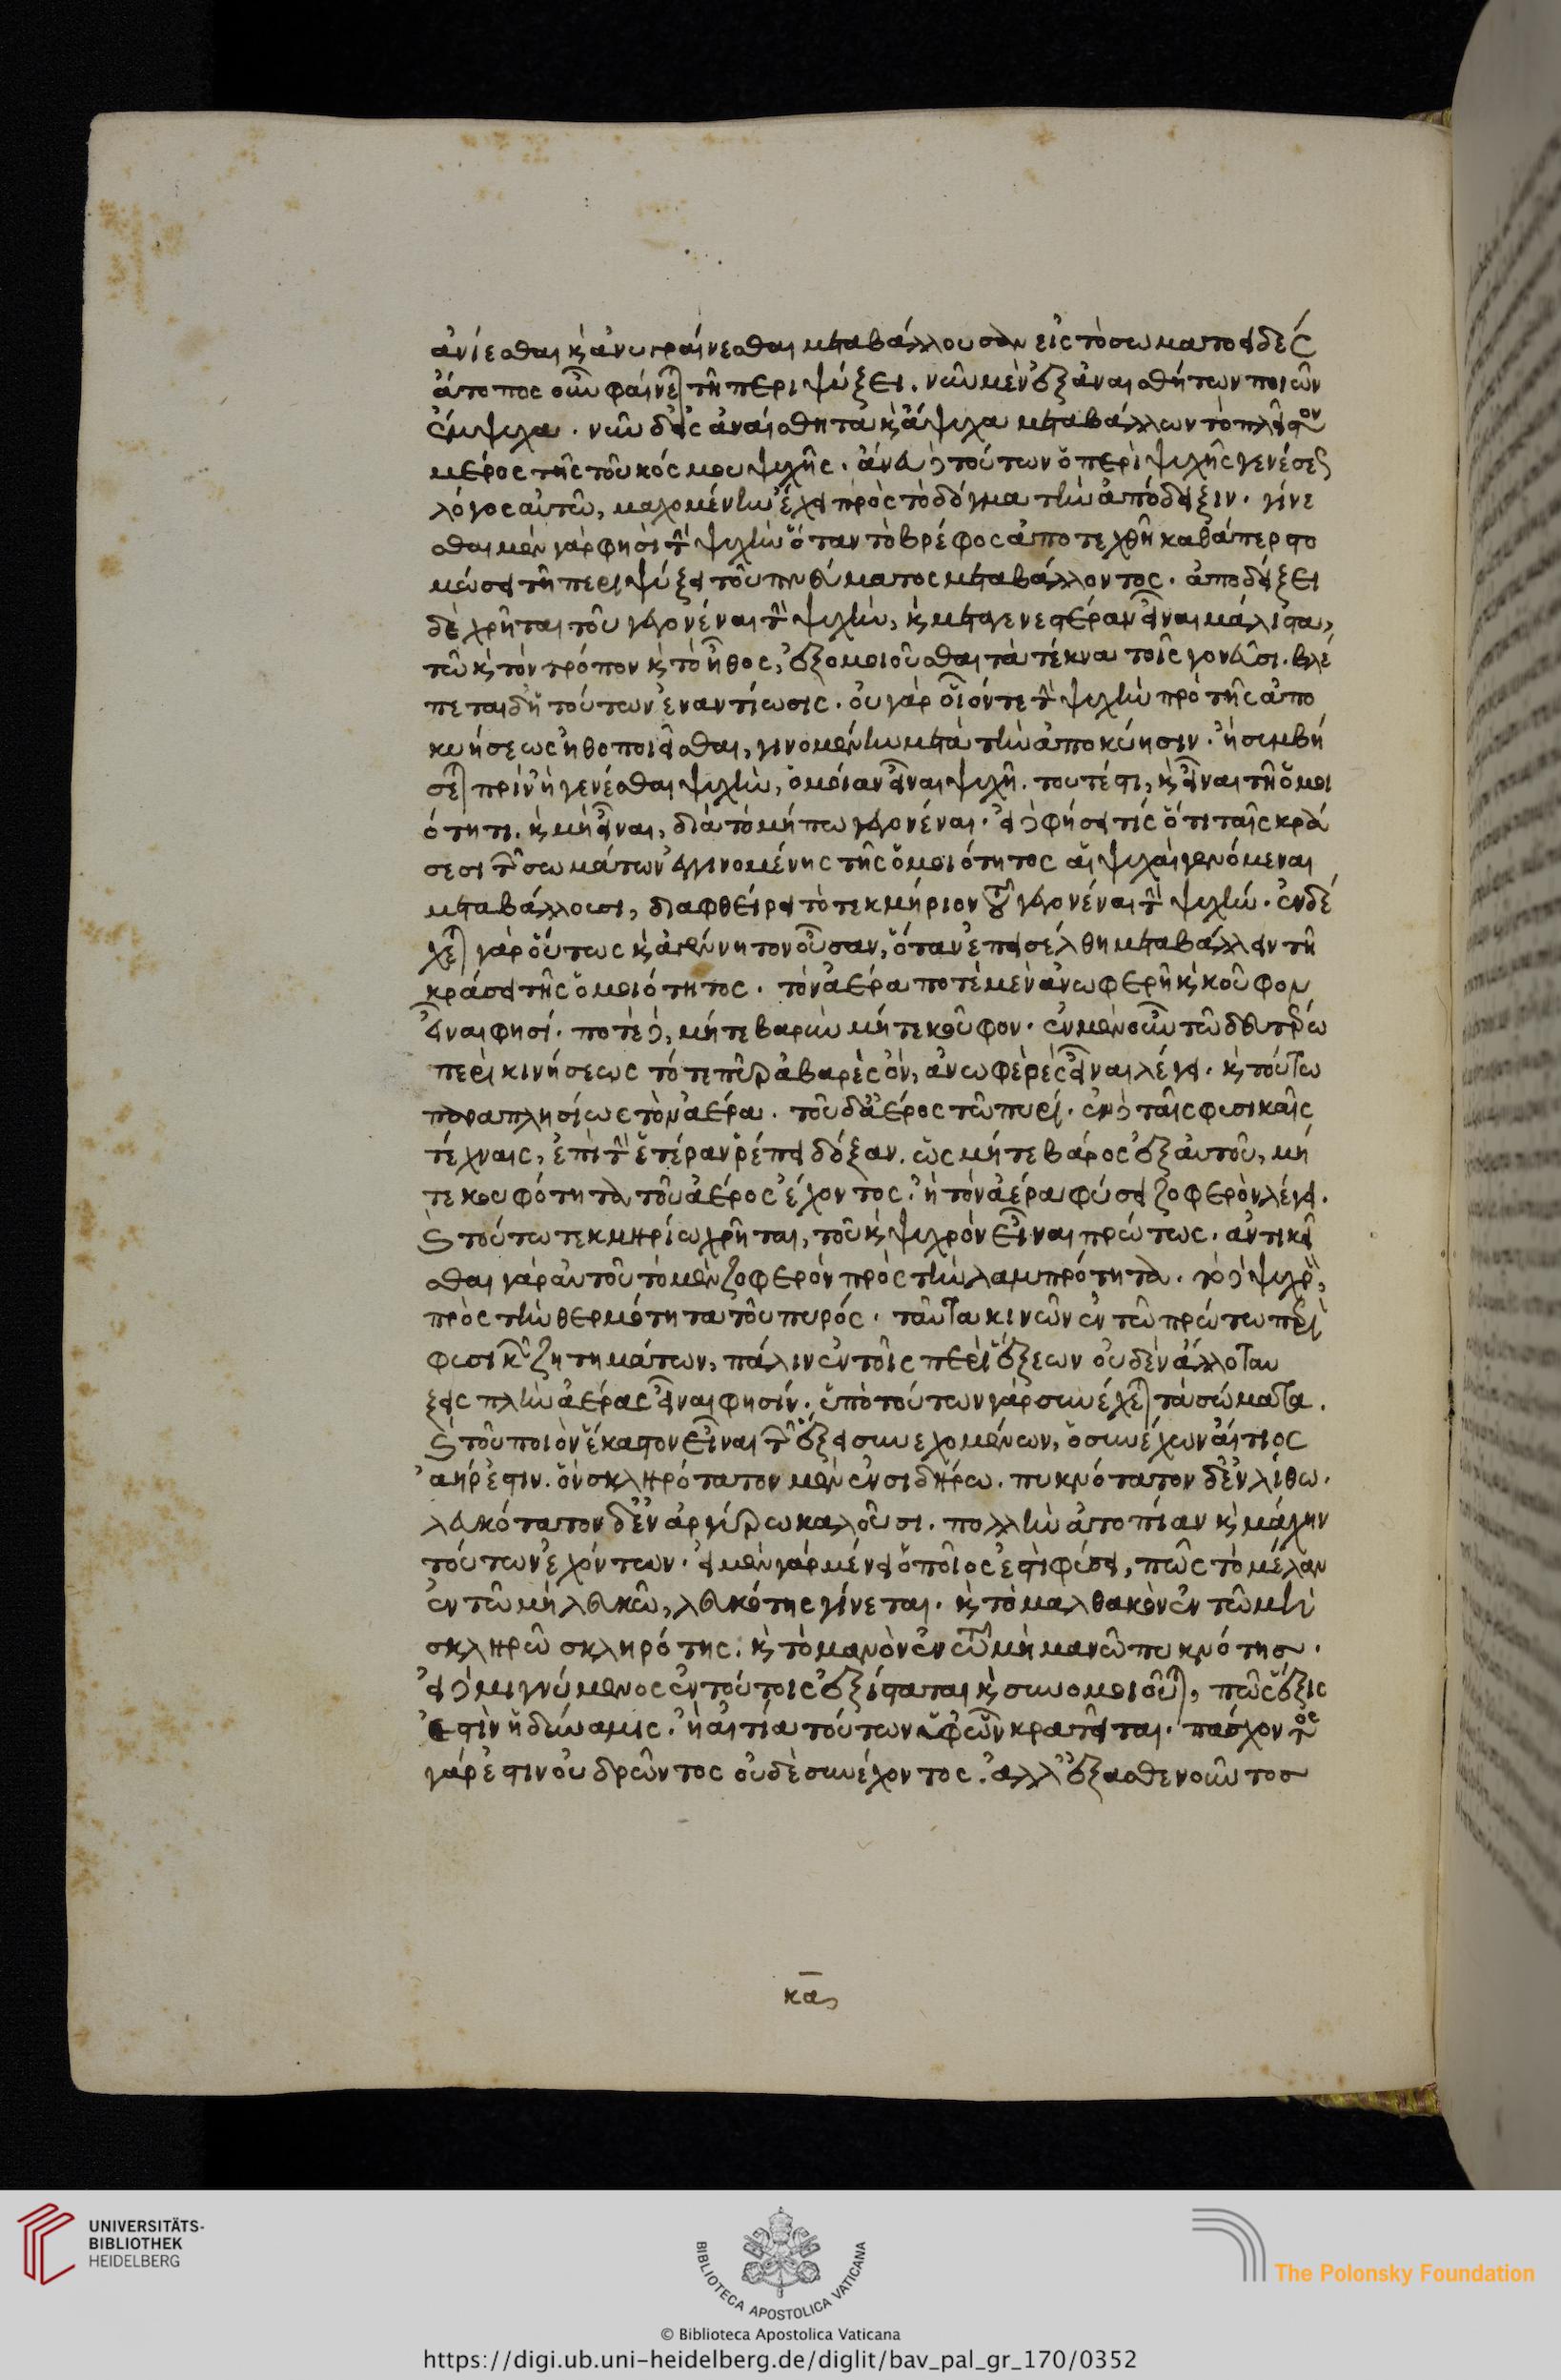 ἀνίεσθαι καὶ ἀνυγραίνεσθαι μεταβάλλουσαν εἰς τὸ σωματοειδές
ἄτοπος οὖν φαίνεται τῆ περιψύξει. νῦν μὲν ἐξ ἀναισθήτων ποιῶν
ἔμψυχα. νῦν δ' εἰς ἀναίσθητα καὶ ἄψυχα μεταβάλλων τὸ πλεῖστον
μέρος τῆς τοῦ κόσμου ψυχῆς. ἄνευ δὲ τούτων ὁ περὶ ψυχῆς γενέσεως
λόγος αὐτῶ, μαχομένην ἔχει πρὸς τὸ δόγμα τὴν ἀπόδειξιν. γίνε
σθαι μὲν γάρ φησι τὴν ψυχὴν ὅταν τὸ βρέφος ἀποτεχθῆ καθάπερ στο
μώσει τῆ περιψύξει τοῦ πνεύματος μεταβάλλοντος. ἀποδείξει
δὲ χρῆται τοῦ γεγονέναι τὴν ψυχὴν, καὶ μεταγενεστέραν εἶναι μάλιστα,
τῶ καὶ τὸν τρόπον καὶ τὸ ἦθος, ἐξομοιοῦσθαι τὰ τέκνα τοῖς γονεῦσι. βλέ
πεται δὴ τούτων ἐναντίωσις. οὐ γὰρ οἷόν τε τὴν ψυχὴν πρὸ τῆς ἀπο
κυήσεως ἠθοποιεῖσθαι, γινομένην μετὰ τὴν ἀποκύησιν. ἢ συμβή
σεται πρὶν ἢ γενέσθαι ψυχὴν, ὁμοίαν εἶναι ψυχῆ. τουτέστι, καὶ εἶναι τῆ ὁμοι
ότητι. καὶ μὴ εἶναι, διὰ τὸ μήπω γεγονέναι. εἰ δὲ φήσει τίς ὅτι ταῖς κρά
σεσι τῶν σωμάτων ἐγγινομένης τῆς ὁμοιότητος αἱ ψυχαὶ γενόμεναι
μεταβάλλουσι, διαφθείρει τὸ τεκμήριον τοῦ γεγονέναι τὴν ψυχήν. ἐνδέ
χεται γὰρ οὕτως καὶ ἀγέννητον οὖσαν, ὅταν ἐπεισέλθη μεταβάλλειν τῆ
κράσει τῆς ὁμοιότητος. τὸν ἀέρα ποτὲ μὲν ἀνωφερῆ καὶ κοῦφον
εἶναι φησί. ποτὲ δὲ, μήτε βαρὺν μήτε κοῦφον. ἐν μὲν οὖν τῶ δευτέρω
περὶ κινήσεως τό τε πῦρ ἀβαρὲς ὂν, ἀνωφερὲς εἶναι λέγει. καὶ τούτω
παραπλησίως τὸν ἀέρα. τοῦ δ' ἀέρος τῶ πυρί. ἐν δὲ ταῖς φυσικαῖς
τέχναις, ἐπὶ τὴν ἑτέραν ῥέπει δόξαν. ὡς μήτε βάρος ἐξ αὑτοῦ, μή
τε κουφότητα τοῦ ἀέρος ἔχοντος. ἢ τὸν ἀέρα φύσει ζοφερὸν λέγει.
καὶ τούτω τεκμηρίω χρῆται, τοῦ καὶ ψυχρὸν εἶναι πρώτως. ἀντικεῖ
σθαι γὰρ αὐτοῦ τὸ μὲν ζοφερὸν πρὸς τὴν λαμπρότητα. τὸ δὲ ψυχρὸν,
πρὸς τὴν θερμότητα τοῦ πυρός. ταῦτα κινῶν ἐν τῶ πρώτω περὶ
φυσικῶν ζητημάτων, πάλιν ἐν τοῖς περὶ ἕξεων οὐδὲν ἄλλο τὰς
ἕξεις πλὴν ἀέρας εἶναι φησίν. ὑπὸ τούτων γὰρ συνέχεται τὰ σώματα.
καὶ τοῦ ποιὸν ἕκαστον εἶναι τῶν ἕξει συνεχομένων, ὁ συνέχων αἴτιος
ἀήρ ἐστιν. ὃν σκληρότατον μὲν ἐν σιδήρω. πυκνότατον δ' ἐν λίθω.
λευκότατον δ' ἐν ἀργύρω καλοῦσι. πολλὴν ἀτοπίαν καὶ μάχην
τούτων ἐχόντων. εἰ μὲν γὰρ μένει ὁποῖος ἐστὶ φύσει, πῶς τὸ μέλαν
ἐν τῶ μὴ λευκῶ, λευκότης γίνεται. καὶ τὸ μαλθακὸν ἐν τῶ μὴ
σκληρῶ σκληρότης. καὶ τὸ μανὸν ἐν τῶ μὴ μανῶ πυκνότης.
εἰ δὲ μιγνύμενος ἐν τούτοις ἐξίσταται καὶ συνομοιοῦται, πῶς ἕξις
ἐστὶν ἢ δύναμις. ἢ αἰτία τούτων ὑφ' ὧν κρατεῖται. πάσχοντος
γάρ ἐστιν οὐ δρῶντος οὐδὲ συνέχοντος. ἀλλ' ἐξασθενοῦντος
κα
UNIVERSITÄTS-
BIBLIOTHEK
HEIDELBERG
BIBLIOTECA APOSTOLICA VATICANA
The Polonsky Foundation
© Biblioteca Apostolica Vaticana
https://digi.ub.uni-heidelberg.de/diglit/bav_pal_gr_170/0352